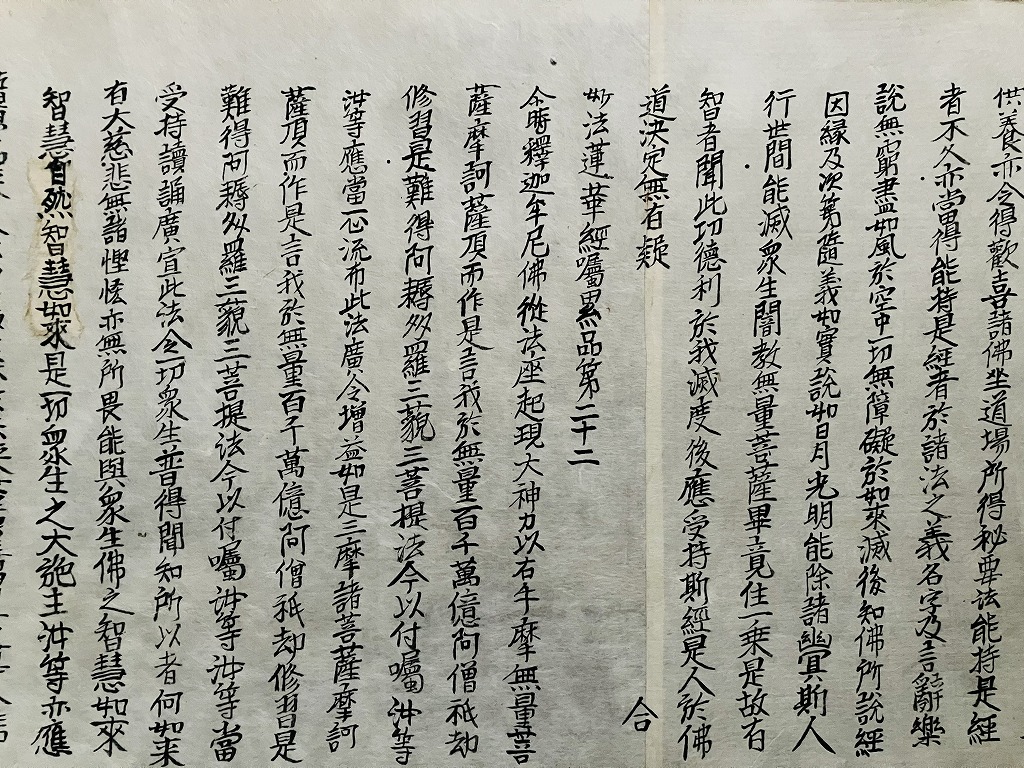 供養亦令得歡喜諸佛坐道場所得秘要法能持是經
者不久亦當得能持是經者於諸法之義名字及言辭樂
說無窮盡如風於空中一切無障礙於如來滅後知佛所說經
因緣及次第隨義如實說如日月光明能除諸幽冥斯人
行世間能滅衆生闇教無量菩薩畢竟住一乘是故有
智者聞此功德利於我滅度後應受持斯經是人於佛
道決定無有疑
合
妙法蓮華經囑累品第二十二
尒時釋迦牟尼佛從法座起現大神力以右手摩無量菩
薩摩訶薩頂而作是言我於無量百千萬億阿僧祇劫
修習是難得阿耨多羅三藐三菩提法今以付囑汝等
汝等應當一心流布此法廣令增益如是三摩諸菩薩摩訶
薩頂而作是言我於無量百千萬億阿僧祇劫修習是
難得阿耨多羅三藐三菩提法今以付囑汝等汝等當
受持讀誦廣宣此法令一切衆生普得聞知所以者何如来
有大慈悲無諸慳悋亦無所畏能與衆生佛之智慧如來
智慧自然智慧如來是一切衆生之大施主汝等亦應